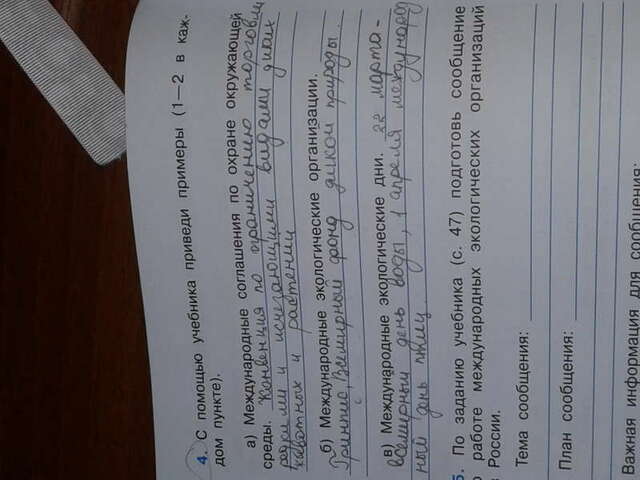 4. С помощью учебника приведи примеры (1—2 в каж-
дом пункте).
а) Международные соглашения по охране окружающей
среды. Конвенция по ограничению торговли
редкими и исчезающими видами диких
животных и растений
б) Международные экологические организации.
Гринпис, Всемирный фонд дикой природы.
в) Международные экологические дни. 22 марта-
всемирный день воды, 1 апреля международ
ный день птиц.
5. По заданию учебника (с. 47) подготовь сообщение
о работе международных экологических организаций
в России.
Тема сообщения:
План сообщения:
Важная информация для сообщения: